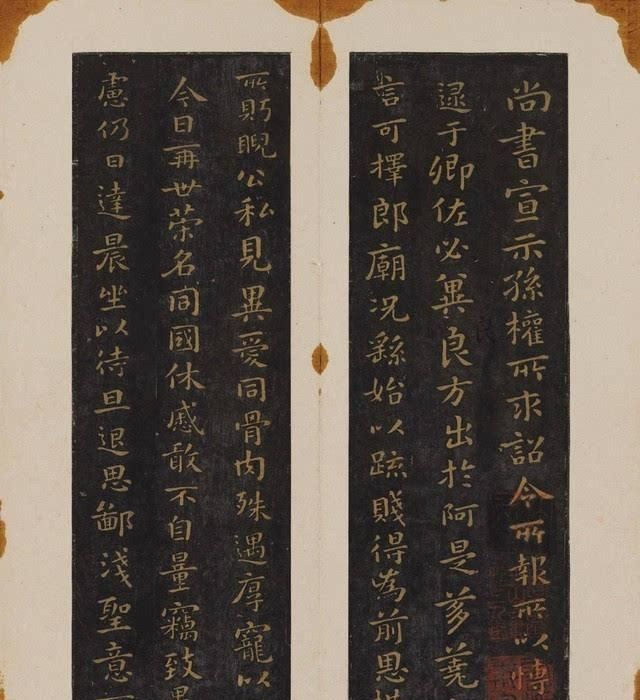 尚書宣示孫權所求詔令所報所以博
逮于卿佐必冀良方出於阿是芻蕘
言可擇郎廟況繇始以疏賤得為前恩
所眄睨公私見異愛同骨肉殊遇厚寵以
今日再世榮名同國休慼敢不自量竊致
慮仍日達晨坐以待旦退思鄙淺聖意